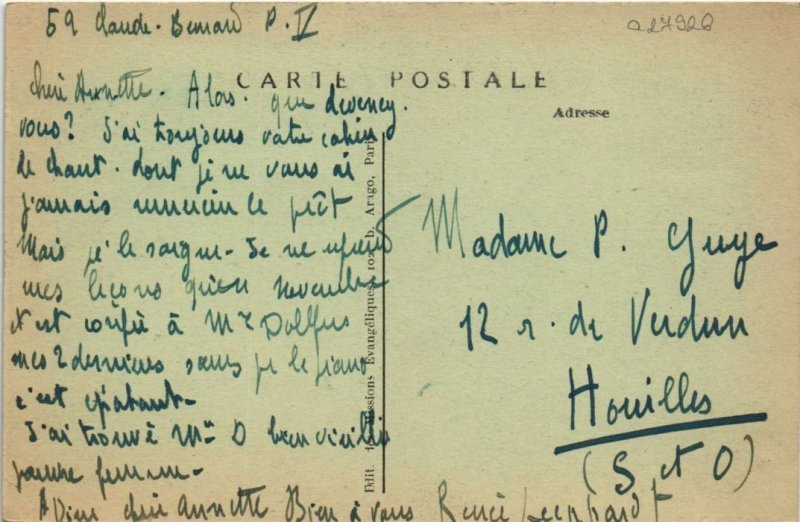 59 Claude-Bernard P. V
a27926
CARTE POSTALE
Adresse
Chère Annette. Alors. que devenez
vous? J'ai toujours votre cahier
de chant. dont je ne vous ai
jamais remercié le prêt
Mais je le soigne - Je ne reprend
mes leçons qu'en novembre
et est confié à Mr Dollfus
mes 2 derniers pr le piano
c'est épatant -
J'ai trouvé Mme D bien vieillie
pauvre femme -
A Dieu chère Annette Bien à vous Renée Leenhardt
Edit. Missions Evangéliques, 102, b. Arago, Paris
Madame P. Guye
12 r. de Verdun
Houilles
(S et O)